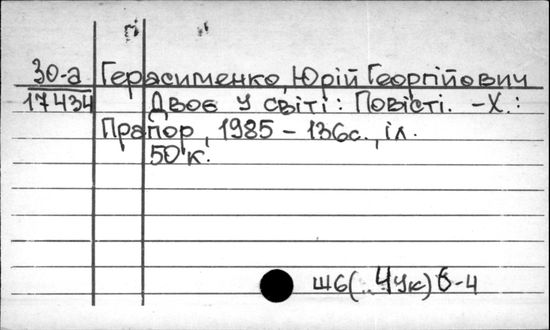 30-а Герасименко, Юрій Георгійович
17434 Двоє у світі: Повісті. -Х.:
Прапор, 1985 - 136с., іл.
50 к.
Ш6(..4Ук)6-4